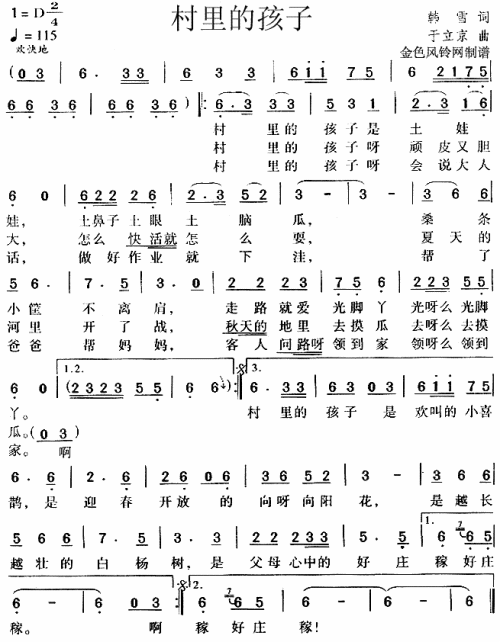 1=D 2/4 村里的孩子
♩=115 韩雪 词
欢快地 于立京 曲
金色风铃网制谱
(0 3 6. 33 6 3 3 6 i i 7 5 6 2 1 7 5
6 6 3 6 6 6 3 6) 6. 3 3 3 5 3 1 2. 3 1 6
村 里的 孩子是 土 娃
村 里的 孩子呀 顽皮又胆
村 里的 孩子呀 会说大人
6 0 6 2 2 2 6 2 5 2 3 - 3 - 3 6 6
娃, 土鼻子土眼 土 脑 瓜, 桑 条
大, 怎么 快活就 怎 么 耍, 夏 天的
话, 做好作业 就 下 洼, 帮 了
5 6. 7. 5 3. 0 2 2 2 3 7 5 6 2 2 3 5 5
小筐 不离肩, 走路就爱 光脚丫 光呀么光脚
河里 开了战, 秋天的地里 去摸瓜 去呀么去摸
爸爸 帮妈妈, 客人问路呀 领到家 领呀么领到
1.2. 3.
6 0 (2 3 2 3 5 5 6 6) 6. 3 3 3 6 3 0 3 6 i i 7 5
丫。 村 里的 孩子 是 欢叫的小喜
瓜。(0 3)
家。 啊
6. 6 2. 6 2 6 0 6 3 6 5 2 3 - 3 6 6
鹊,是 迎春 开放 的 向呀向阳 花, 是越长
5 6 6 7. 5 3. 3 2 2 2 3 3 5. 5 6 6 5
越壮的 白杨 树,是 父母心中的 好庄 稼好庄
1.
6 - 6 - 6 0 3 2. 6 6 5 6 - 6 0
稼。 啊 稼 好庄 稼!